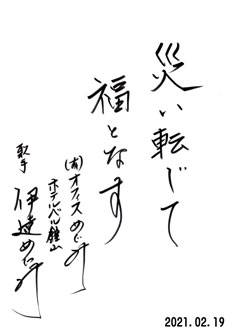 災い転じて
福となす
(有)オフィスめぐみ
ホテルベル鶴山
歌手
伊達めぐみ
2021.02.19